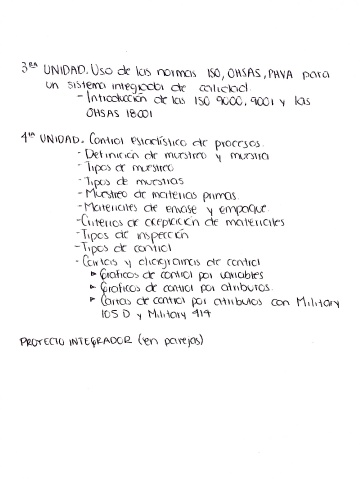 3ra UNIDAD. Uso de las normas ISO, OHSAS, PHVA para
un sistema integrado de calidad
- Introducción de las ISO 9000, 9001 y las
OHSAS 18001
4ta UNIDAD. Control estadístico de procesos.
- Definición de muestreo y muestra
- Tipos de muestreo
- Tipos de muestras
- Muestreo de materias primas.
- Materiales de envase y empaque.
- Criterios de aceptación de materiales
- Tipos de inspección
- Tipos de control
- Cartas y diagramas de control
▸ Gráficos de control por variables
▸ Gráficos de control por atributos.
▸ Cartas de control por atributos con Military
105 D y Military 414
PROYECTO INTEGRADOR (en parejas)